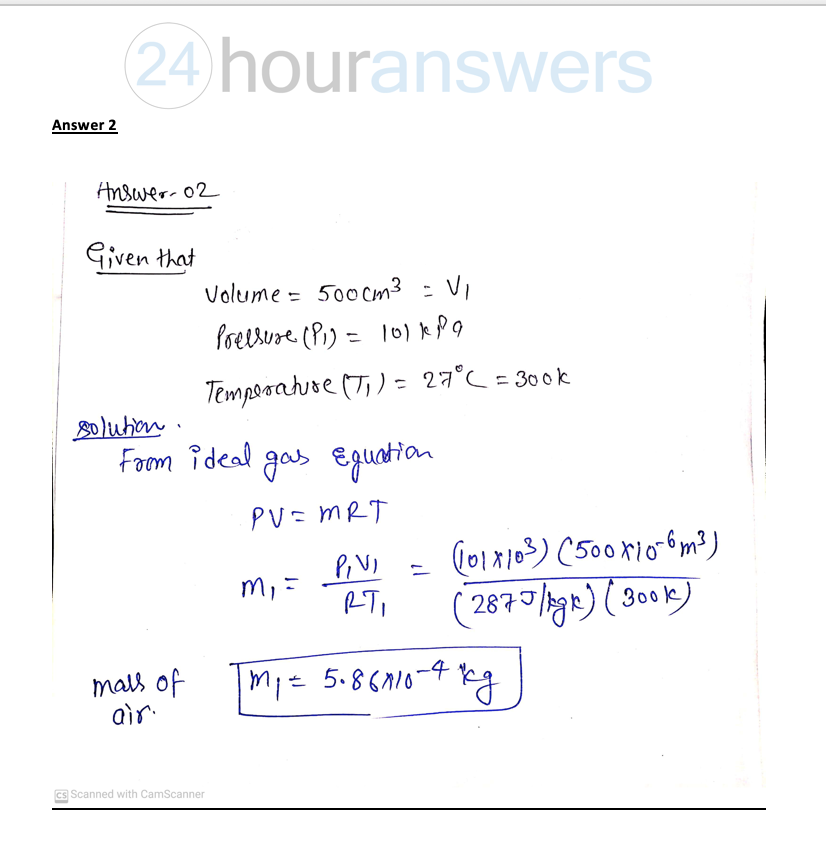 24 houranswers
Answer 2
Answer-02
Given that
Volume = 500cm³ = V₁
Pressure (P₁) = 101 kPa
Temperature (T₁) = 27°C = 300k
solution.
From ideal gas Equation
PV = mRT
m₁ = P₁V₁ / RT₁ = (101x10³) (500x10⁻⁶m³) / (287J/kgk) (300k)
mass of air. m₁ = 5.86x10⁻⁴ kg
CS Scanned with CamScanner